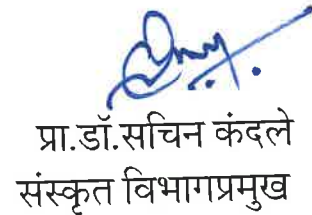 प्रा.डॉ.सचिन कंदले
संस्कृत विभागप्रमुख